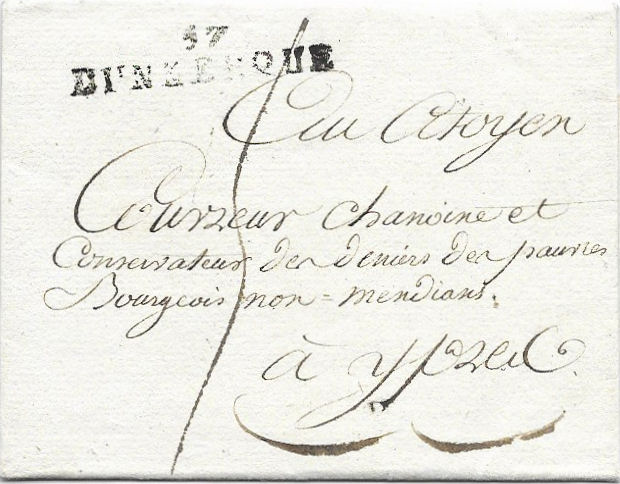 57
DUNKERQUE
Au Citoyen
Courzeur chanoine et
Conservateur des deniers des pauvres
Bourgeois non=mendians.
à ypres